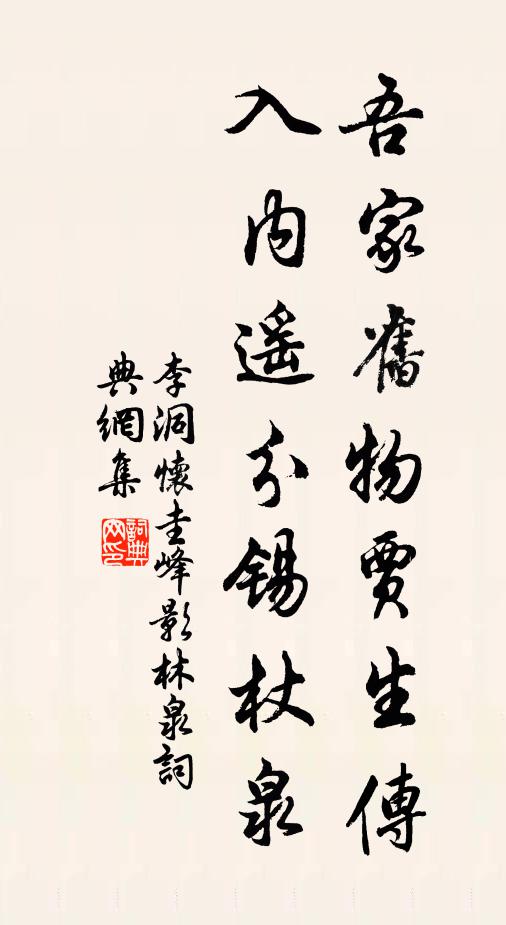 吾家舊物賈生傳
入內遥分錫杖泉
李洞懷圭峰影林泉詞
典網集
詞典
网印